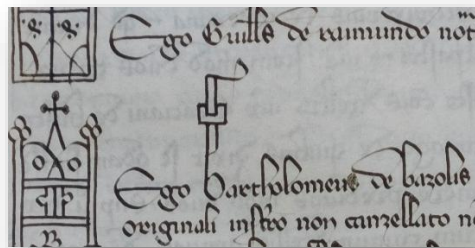 Ego Guills de raimundo not
Ego Bartholomeus de bazolis
originali instro non canzellato n